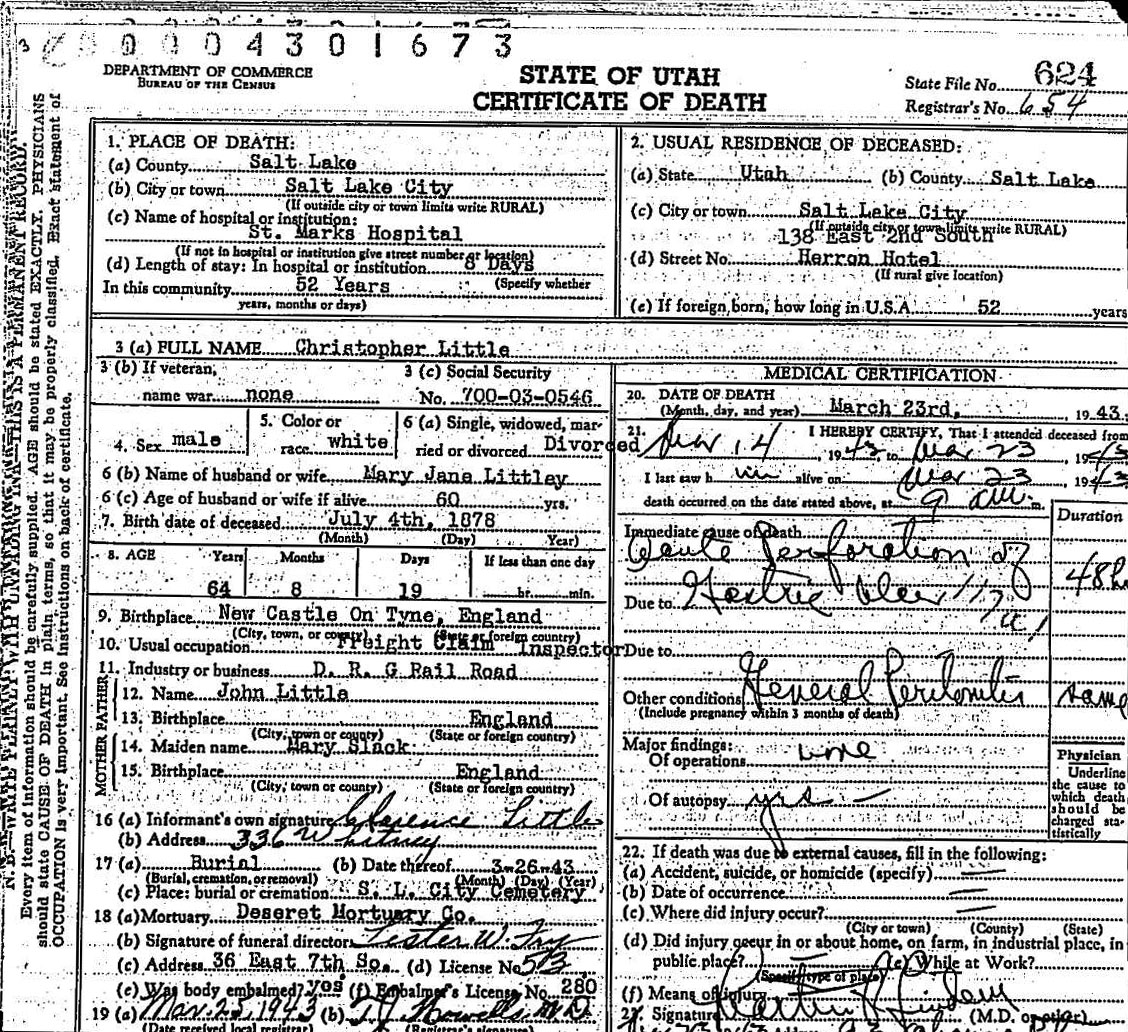 0 0 0 4 3 0 1 6 7 3
DEPARTMENT OF COMMERCE
BUREAU OF THE CENSUS
STATE OF UTAH
CERTIFICATE OF DEATH
State File No. 624
Registrar's No. 654
N. B.—WRITE PLAINLY WITH UNFADING INK—THIS IS A PERMANENT RECORD.
Every item of information should be carefully supplied. AGE should be stated EXACTLY. PHYSICIANS
should state CAUSE OF DEATH in plain terms, so that it may be properly classified. Exact statement of
OCCUPATION is very important. See instructions on back of certificate.
1. PLACE OF DEATH:
(a) County Salt Lake
(b) City or town Salt Lake City
(If outside city or town limits write RURAL)
(c) Name of hospital or institution:
St. Marks Hospital
(If not in hospital or institution give street number or location)
(d) Length of stay: In hospital or institution 8 Days
In this community 52 Years (Specify whether
years, months or days)
2. USUAL RESIDENCE OF DECEASED:
(a) State Utah (b) County Salt Lake
(c) City or town Salt Lake City
(If outside city or town limits write RURAL)
138 East 2nd South
(d) Street No. Herron Hotel
(If rural give location)
(e) If foreign born, how long in U.S.A. 52 years
3 (a) FULL NAME Christopher Little
3 (b) If veteran, 3 (c) Social Security
name war none No. 700-03-0546
4. Sex male 5. Color or race white 6 (a) Single, widowed, married or divorced Divorced
6 (b) Name of husband or wife Mary Jane Littley
6 (c) Age of husband or wife if alive 60 yrs.
7. Birth date of deceased July 4th, 1878
(Month) (Day) Year)
8. AGE Years Months Days If less than one day
64 8 19 hr. min.
9. Birthplace New Castle On Tyne, England
(City, town, or county) (State or foreign country)
10. Usual occupation Freight Claim Inspector
11. Industry or business D. R. G Rail Road
FATHER
12. Name John Little
13. Birthplace England
(City, town or county) (State or foreign country)
MOTHER
14. Maiden name Mary Slack
15. Birthplace England
(City, town or county) (State or foreign country)
16 (a) Informant's own signature Clarence Little
(b) Address 336 Whitney
17 (a) Burial (b) Date thereof 3-26-43
(Burial, cremation, or removal) (Month) (Day) (Year)
(c) Place: burial or cremation S. L. City Cemetery
18 (a) Mortuary Deseret Mortuary Co.
(b) Signature of funeral director Lester W. Fry
(c) Address 36 East 7th So. (d) License No. 513
(e) Was body embalmed? yos (f) Embalmer's License No. 280
19 (a) Mar. 25, 1943 (b) M.D.
(Date received local registrar) (Registrar's signature)
MEDICAL CERTIFICATION
20. DATE OF DEATH
(Month, day, and year) March 23rd, 1943
21. I HEREBY CERTIFY, That I attended deceased from
Mar 14, 1943, to Mar 23 1943
I last saw h im alive on Mar 23, 1943
death occurred on the date stated above, at 9 a.m. m.
Duration
Immediate cause of death
Acute Perforation of
48 h
Due to Gastric Ulcer
Due to
Other conditions General Peritonitis same
(Include pregnancy within 3 months of death)
Major findings:
Of operations none
Of autopsy yes —
Physician
Underline
the cause to
which death
should be
charged sta-
tistically
22. If death was due to external causes, fill in the following:
(a) Accident, suicide, or homicide (specify) —
(b) Date of occurrence —
(c) Where did injury occur? —
(City or town) (County) (State)
(d) Did injury occur in or about home, on farm, in industrial place, in
public place? (e) While at Work?
(Specify type of place)
(f) Means of injury
23. Signature (M.D. or other)